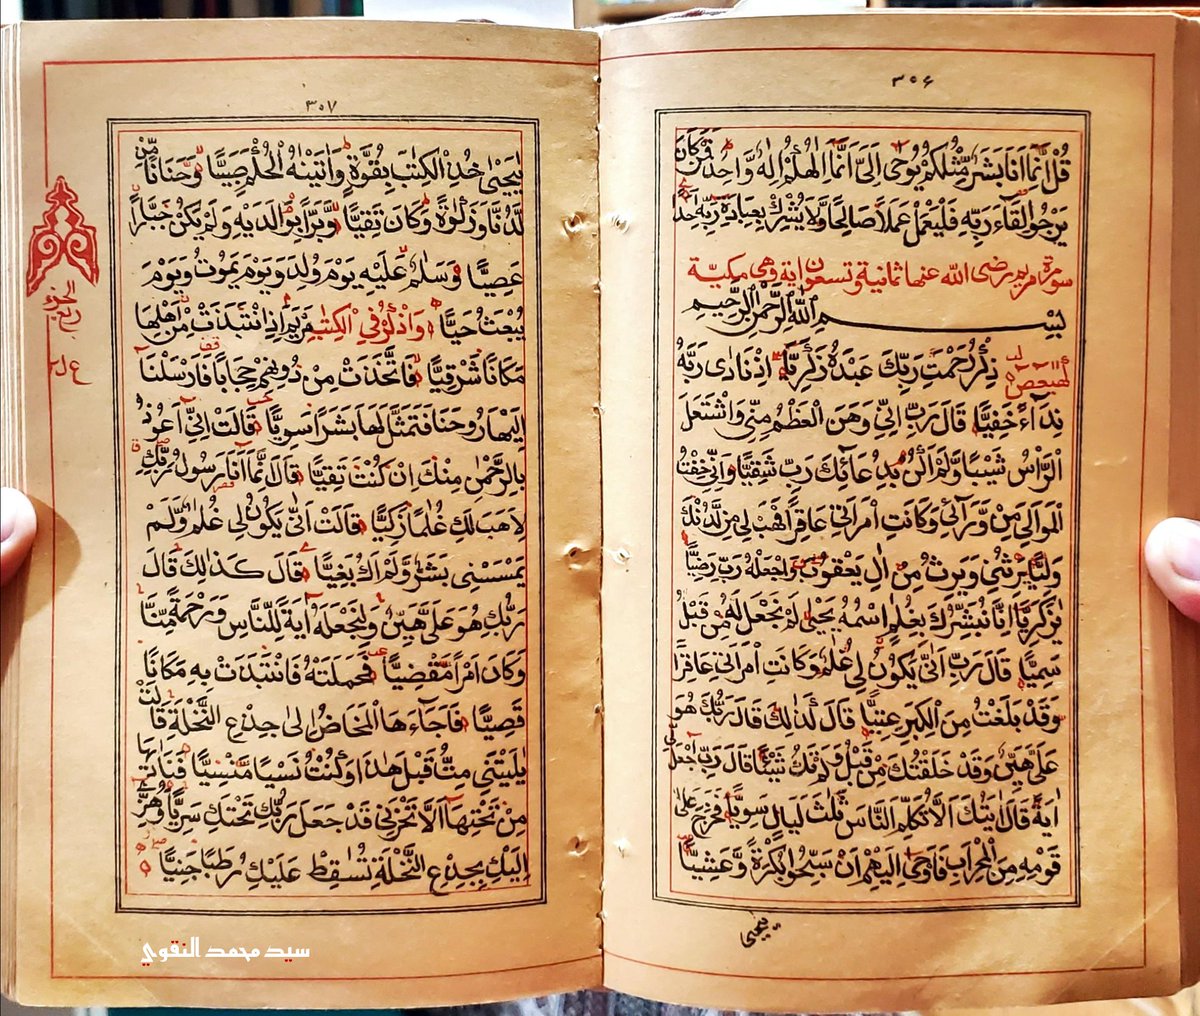 ٣٠٦
قُلْ اِنَّمَا اَنَا بَشَرٌ مِّثْلُكُمْ يُوحٰى اِلَىَّ اَنَّمَا اِلٰهُكُمْ اِلٰهٌ وَّاحِدٌ فَمَنْ كَانَ
يَرْجُوا لِقَاءَ رَبِّهٖ فَلْيَعْمَلْ عَمَلًا صَالِحًا وَّلَا يُشْرِكْ بِعِبَادَةِ رَبِّهٖ اَحَدًا
سورة مريم رضى الله عنها ثمانية وتسعون اية وهى مكية
بِسْمِ اللّٰهِ الرَّحْمٰنِ الرَّحِيْمِ
كٓهٰيٰعٓصٓ ذِكْرُ رَحْمَتِ رَبِّكَ عَبْدَهٗ زَكَرِيَّا اِذْ نَادٰى رَبَّهٗ
نِدَاءً خَفِيًّا قَالَ رَبِّ اِنِّىْ وَهَنَ الْعَظْمُ مِنِّىْ وَاشْتَعَلَ
الرَّاْسُ شَيْبًا وَّلَمْ اَكُنْ بِدُعَائِكَ رَبِّ شَقِيًّا وَاِنِّىْ خِفْتُ
الْمَوَالِىَ مِنْ وَّرَآئِىْ وَكَانَتِ امْرَاَتِىْ عَاقِرًا فَهَبْ لِىْ مِنْ لَّدُنْكَ
وَلِيًّا يَرِثُنِىْ وَيَرِثُ مِنْ اٰلِ يَعْقُوْبَ وَاجْعَلْهُ رَبِّ رَضِيًّا
يٰزَكَرِيَّا اِنَّا نُبَشِّرُكَ بِغُلٰمٍ اسْمُهٗ يَحْيٰى لَمْ نَجْعَلْ لَّهٗ مِنْ قَبْلُ
سَمِيًّا قَالَ رَبِّ اَنّٰى يَكُوْنُ لِىْ غُلٰمٌ وَّكَانَتِ امْرَاَتِىْ عَاقِرًا
وَّقَدْ بَلَغْتُ مِنَ الْكِبَرِ عِتِيًّا قَالَ كَذٰلِكَ قَالَ رَبُّكَ هُوَ
عَلَىَّ هَيِّنٌ وَّقَدْ خَلَقْتُكَ مِنْ قَبْلُ وَلَمْ تَكُ شَيْئًا قَالَ رَبِّ اجْعَلْ لِّىْ
اٰيَةً قَالَ اٰيَتُكَ اَلَّا تُكَلِّمَ النَّاسَ ثَلٰثَ لَيَالٍ سَوِيًّا فَخَرَجَ عَلٰى
قَوْمِهٖ مِنَ الْمِحْرَابِ فَاَوْحٰى اِلَيْهِمْ اَنْ سَبِّحُوْا بُكْرَةً وَّعَشِيًّا
يٰيَحْيٰى
٣٠٧
يٰيَحْيٰى خُذِ الْكِتٰبَ بِقُوَّةٍ وَاٰتَيْنٰهُ الْحُكْمَ صَبِيًّا وَّحَنَانًا مِّنْ
لَّدُنَّا وَزَكٰوةً وَكَانَ تَقِيًّا وَّبَرًّا بِوَالِدَيْهِ وَلَمْ يَكُنْ جَبَّارًا
عَصِيًّا وَسَلٰمٌ عَلَيْهِ يَوْمَ وُلِدَ وَيَوْمَ يَمُوْتُ وَيَوْمَ
يُبْعَثُ حَيًّا وَاذْكُرْ فِى الْكِتٰبِ مَرْيَمَ اِذِ انْتَبَذَتْ مِنْ اَهْلِهَا
مَكَانًا شَرْقِيًّا فَاتَّخَذَتْ مِنْ دُوْنِهِمْ حِجَابًا فَاَرْسَلْنَا
اِلَيْهَا رُوْحَنَا فَتَمَثَّلَ لَهَا بَشَرًا سَوِيًّا قَالَتْ اِنِّىْ اَعُوْذُ
بِالرَّحْمٰنِ مِنْكَ اِنْ كُنْتَ تَقِيًّا قَالَ اِنَّمَا اَنَا رَسُوْلُ رَبِّكِ
لِاَهَبَ لَكِ غُلٰمًا زَكِيًّا قَالَتْ اَنّٰى يَكُوْنُ لِىْ غُلٰمٌ وَّلَمْ
يَمْسَسْنِىْ بَشَرٌ وَّلَمْ اَكُ بَغِيًّا قَالَ كَذٰلِكِ قَالَ
رَبُّكِ هُوَ عَلَىَّ هَيِّنٌ وَلِنَجْعَلَهٗ اٰيَةً لِّلنَّاسِ وَرَحْمَةً مِّنَّا
وَكَانَ اَمْرًا مَّقْضِيًّا فَحَمَلَتْهُ فَانْتَبَذَتْ بِهٖ مَكَانًا
قَصِيًّا فَاَجَآءَهَا الْمَخَاضُ اِلٰى جِذْعِ النَّخْلَةِ قَالَتْ
يٰلَيْتَنِىْ مِتُّ قَبْلَ هٰذَا وَكُنْتُ نَسْيًا مَّنْسِيًّا فَنَادٰىهَا
مِنْ تَحْتِهَا اَلَّا تَحْزَنِىْ قَدْ جَعَلَ رَبُّكِ تَحْتَكِ سَرِيًّا وَهُزِّىْ
اِلَيْكِ بِجِذْعِ النَّخْلَةِ تُسٰقِطْ عَلَيْكِ رُطَبًا جَنِيًّا
سيد محمد النقوي